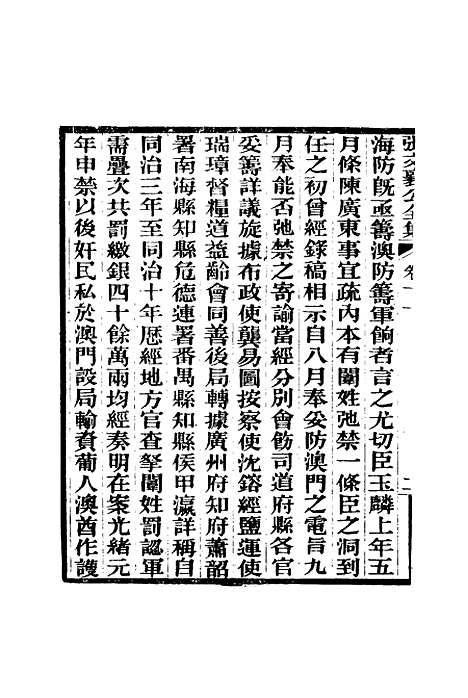 海防旣亟籌澳防籌軍餉者言之尤切臣玉麟上年五
月條陳廣東事宜疏內本有闈姓弛禁一條臣之洞到
任之初曾經錄稿相示自八月奉妥防澳門之電旨九
月奉能否弛禁之寄諭當經分別會飭司道府縣各官
妥籌詳議旋據布政使龔易圖按察使沈鎔經鹽運使
瑞璋督糧道益齡會同善後局轉據廣州府知府蕭韶
署南海縣知縣危德連署番禺縣知縣侯甲瀛詳稱自
同治三年至同治十年歷經地方官查拏闈姓罰認軍
需曡次共罰繳銀四十餘萬兩均經奏明在案光緖元
年申禁以後奸民私於澳門設局輸賚葡人澳酋作護